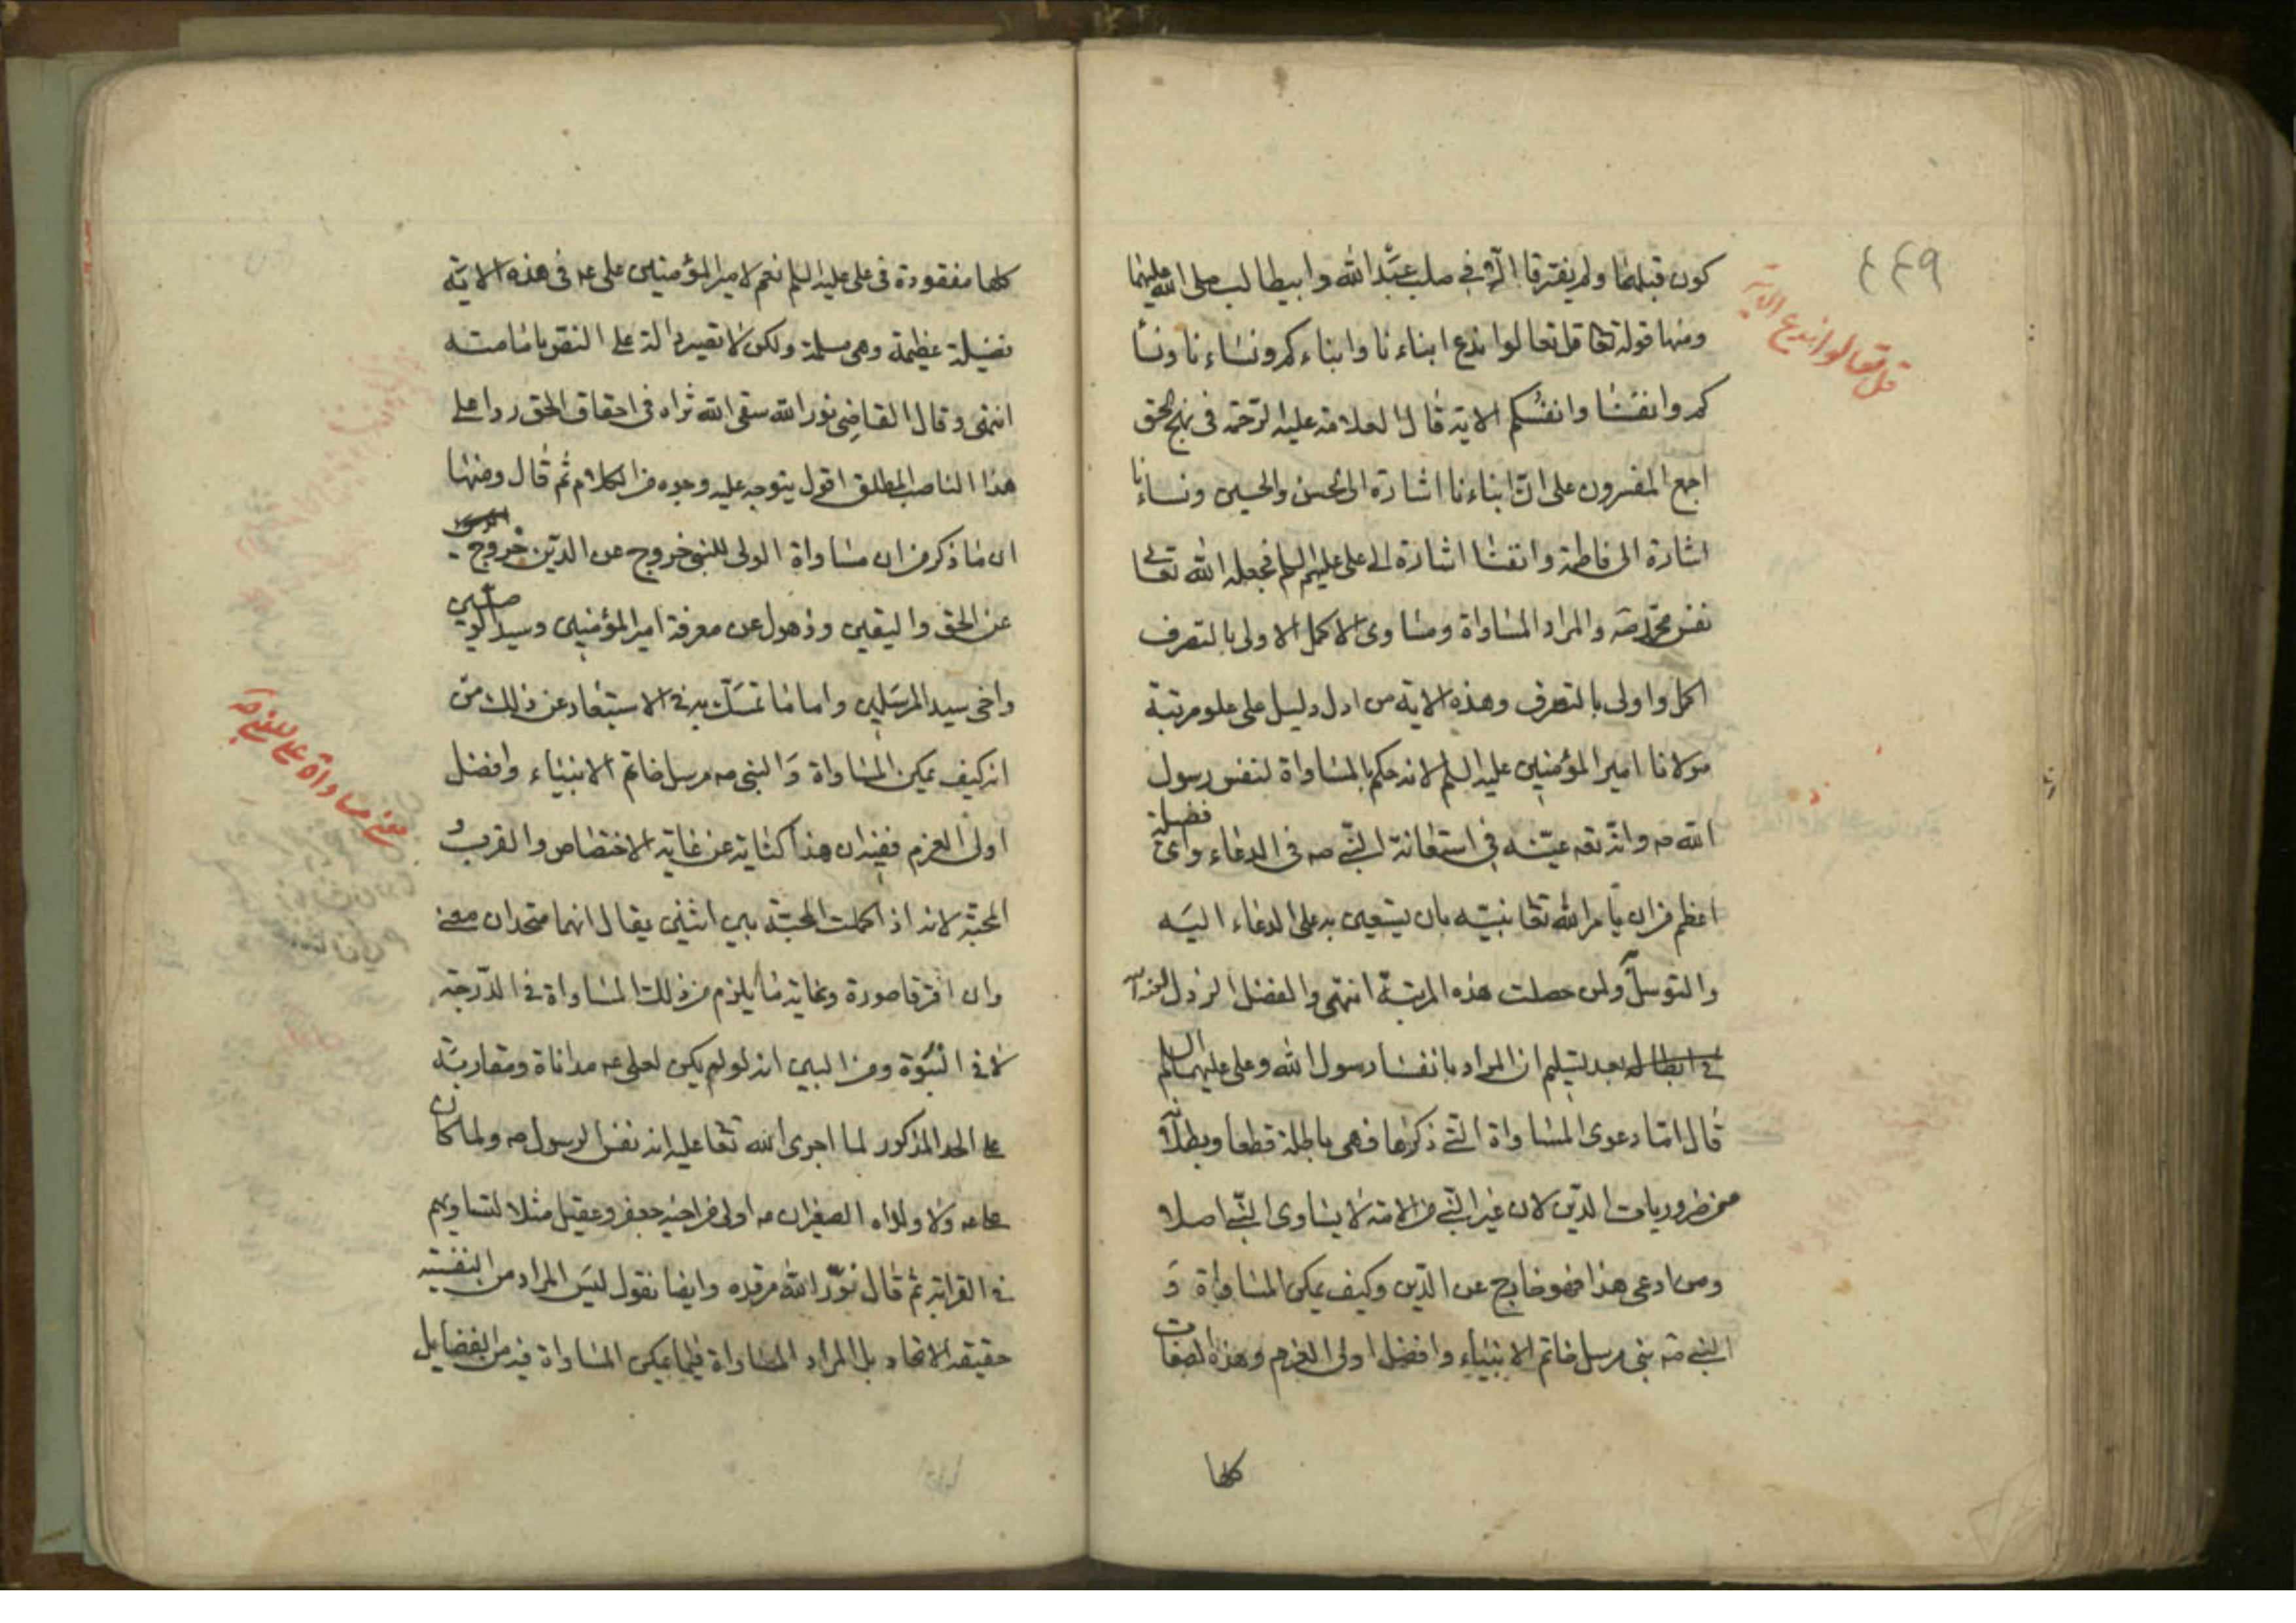 ٤٤٩
قل تعالوا ندع الاية
كون قبلهما ولم يفترقا الا فى صلب عبد الله وابيطالب صلى الله عليهما
ومنها قوله تعا قل تعالوا ندع ابناءنا وابناءكم ونساءنا ونسا
كم وانفسنا وانفسكم الاية قال العلامة عليه الرحمة فى نهج الحق
اجمع المفسرون على ان ابناءنا اشارة الى الحسن والحسين ونساءنا
اشارة الى فاطمة وانفسنا اشارة الى على عليهم السلم فجعله الله تعالى
نفس محمد صه والمراد المساواة ومساوى الاكمل الاولى بالتصرف
اكمل واولى بالتصرف وهذه الاية من ادل دليل على علو مرتبة
مولانا امير المؤمنين عليه السلم لانه حكم بالمساواة لنفس رسول
الله صه وانه تعه عينه فى استعانة النبى صه فى الدعاء واى فضيلة
اعظم من ان يامر الله تعا نبيه بان يستعين به على الدعاء اليه
والتوسل ولمن حصلت هذه المرتبة انتهى والفضل الرذل
فى ابطاله بعد تسليم ان المراد بانفسنا رسول الله وعلى عليهما السلم
قال اما دعوى المساواة التى ذكرها فهى باطلة قطعا وبطلانها
من ضروريات الدين لان غير النبى من الامة لا يساوى النبى اصلا
ومن ادعى هذا فهو خارج عن الدين وكيف يمكن المساواة و
النبى صه نبى مرسل خاتم الانبياء وافضل اولى العزم وهذه الصفات
كلها
كلها مفقودة فى على عليه السلم نعم لامير المؤمنين على عه فى هذه الاية
فضيلة عظيمة وهى مسلمة ولكن لا تصير دالة على النص بامامته
انتهى وقال القاضى نور الله سقى الله ثراه فى احقاق الحق ردا على
هذا الناصب المطلق اقول يتوجه عليه وجوه من الكلام ثم قال ومنها
ان ما ذكر من ان مساواة الولى للنبى خروج عن الدين خروج
عن الحق واليقين وذهول عن معرفة امير المؤمنين وسيد الوصيين
واخى سيد المرسلين واما ما تمسك به فى الاستبعاد عن ذلك من
انه كيف يمكن المساواة والنبى صه مرسل خاتم الانبياء وافضل
اولى العزم ففيه ان هذا كناية عن غاية الاختصاص والقرب و
المحبة لانه اذا كملت المحبة بين اثنين يقال انهما متحدان معنى
وان افترقا صورة وغاية ما يلزم من ذلك المساواة فى الدرجة
لا فى النبوة ومن البين انه لو لم يكن لعلى عه مداناة ومقاربة
على الحد المذكور لما اجرى الله تعا عليه انه نفس الرسول صه ولما كان
على عه ولا ولداه الصغيران عه اولى من اخيه جعفر وعقيل مثلا لتساويهم
فى القرابة ثم قال نور الله مرقده وايضا نقول ليس المراد من النفسية
حقيقة الاتحاد بل المراد المساواة فيما يمكن المساواة فيه من الفضايل
معنى مساواة على للنبى صه